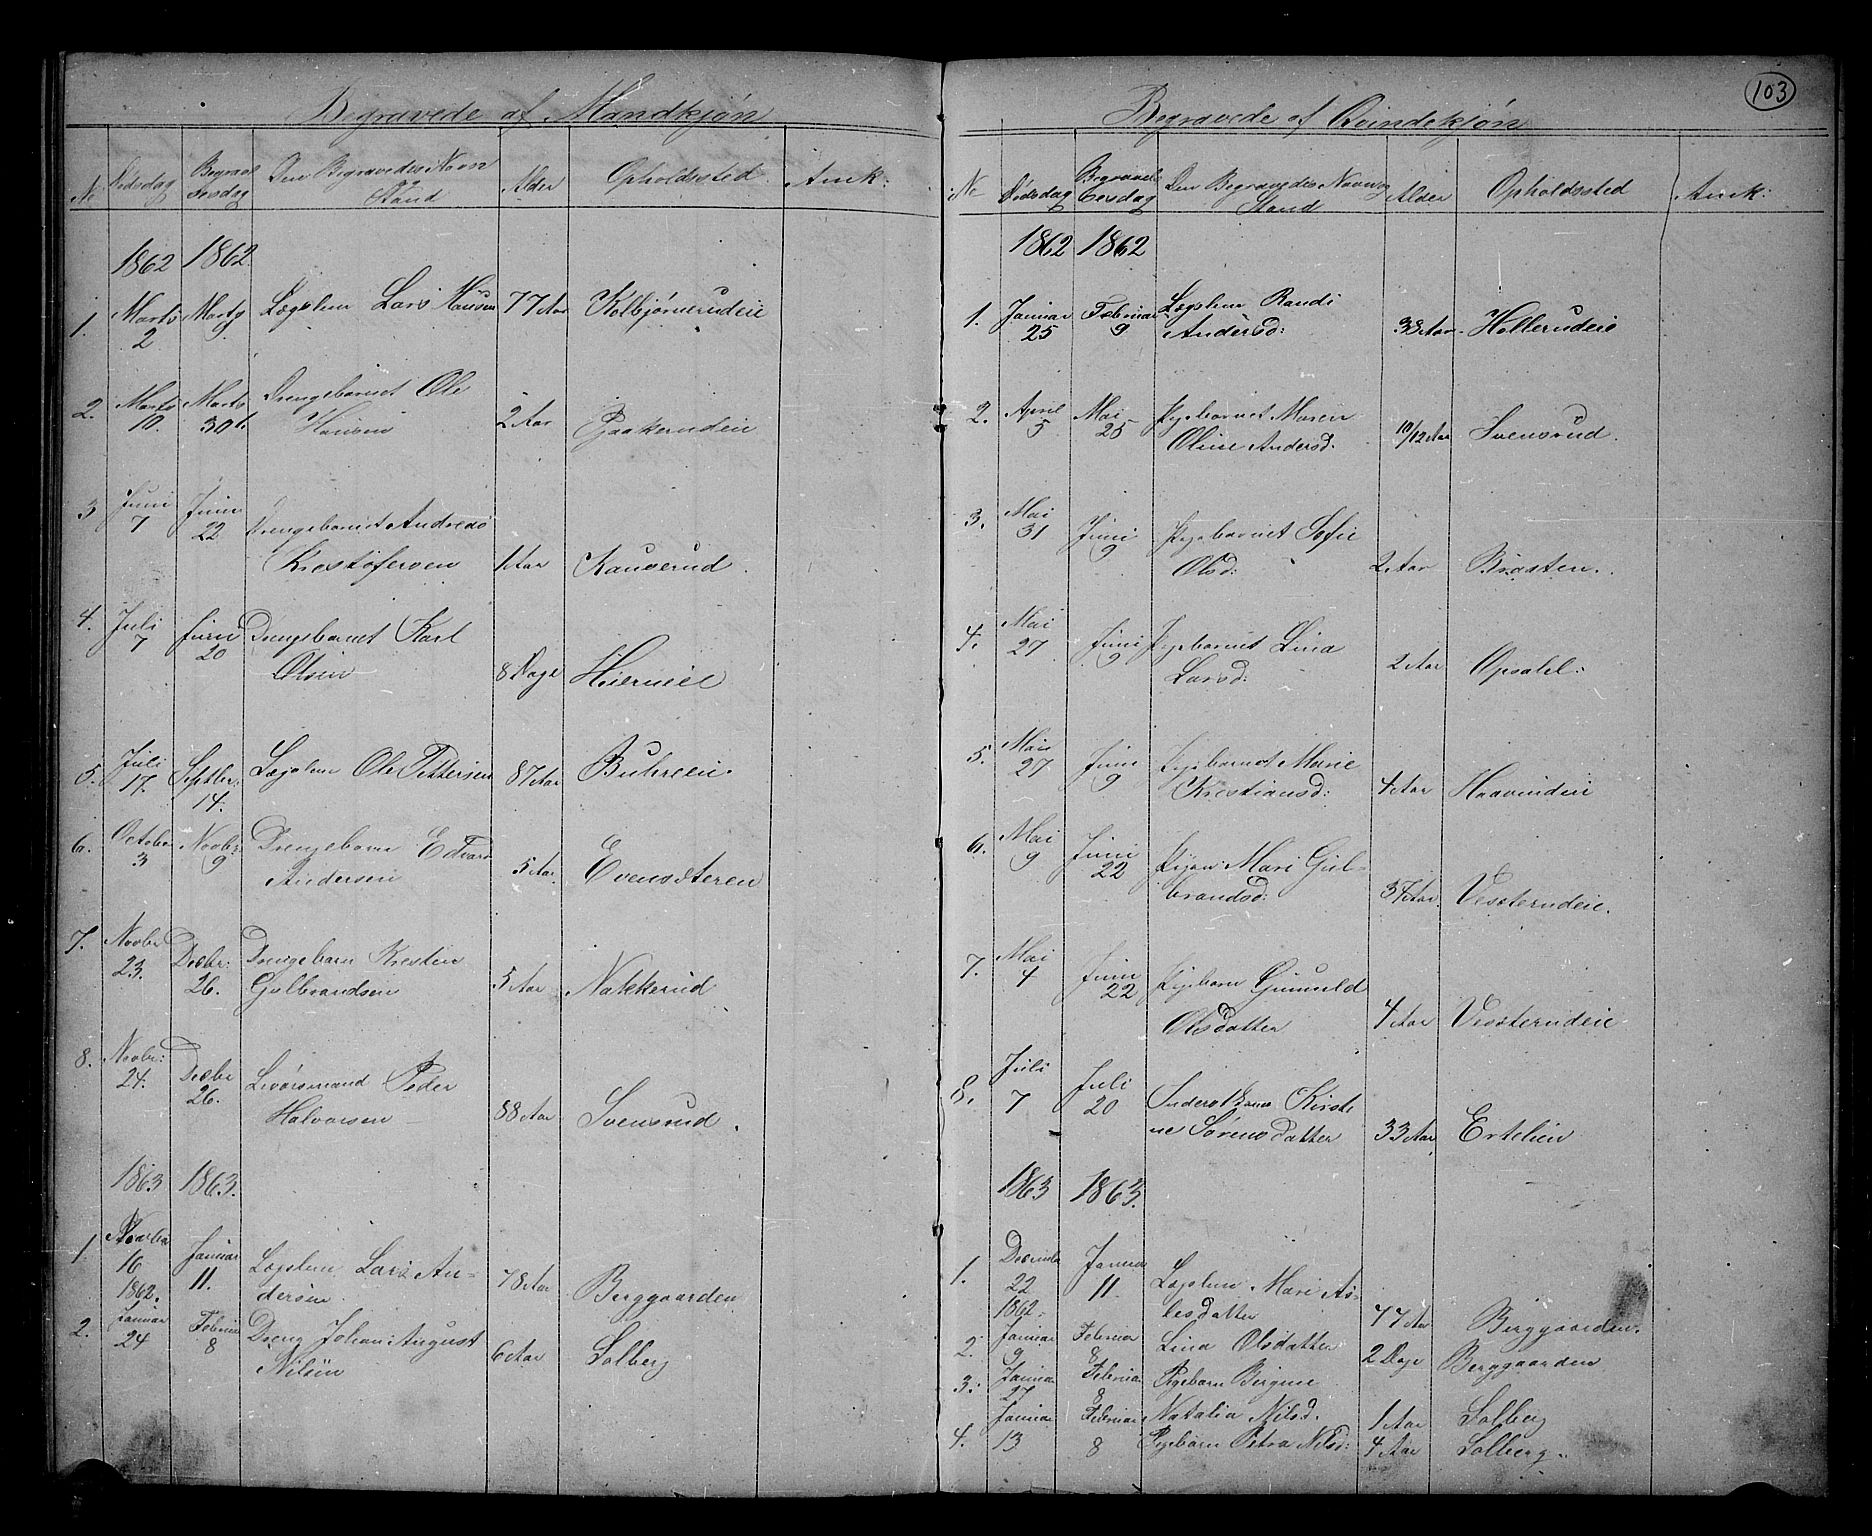 103
Begravede af Mandkjøn
No Dødsdag Begravelsesdag Den Begravedes Navn og Stand Alder Opholdssted Anm:
1862 1862
1. Marts 2 Marts 9 Lægslem Lars Hansen 77 Aar Kolbjørnrudeie
2. Marts 10. Marts 30 Drengebarnet Ole
Hansen 2 Aar Gaakerudeie
3 Juni 7 Juni 22 Drengebarnet Andreas
Kristofersen 1 Aar Kauserud.
4. Juli 7 Juni 20 Drengebarnet Karl
Olsen 8 Dage
5. Juli 17. Septbr: 14. Lægslem Ole Pettersen 87 Aar
6. October 3 Novbr: 9 Drengebarn Edvard
Andersen 5 Aar Evensæteren
7. Novbr 23. Decbr: 26. Drengebarn Kresten
Gulbrandsen 5 Aar Nakkerud
8. Novbr: 24. Decbr 26. Livørsmand Peder
Halvorsen 88 Aar Svensrud.
1863 1863.
1. Novbr 16 1862. Januar 11. Lægslem Lars An-
dersen 78 Aar Berggaarden
2. Januar 24 Februar 8 Dreng Johan August
Nilsen 6 Aar Solberg
Begravede af Qvindekjøn
No Dødsdag Begravelsesdag Den Begravedes Navn og Stand Alder Opholdssted Anm:
1862 1862
1. Januar 25 Februar 9 Lægslem Randi
Andersd: 33 Aar Hollerudeie
2. April 5 Mai 25 Pigebarnet Maren
Oline Andersd. 10/12 Aar Svensrud.
3. Mai 31 Juni 9 Pigebarnet Sofie
Olsd: 2 Aar Braaten.
4. Mai 27 Juni 9 Pigebarnet Lina
Larsd: 2 Aar Opsahl:
5. Mai 27 Juni 9 Pigebarnet Marie
Kristiansd: 4 Aar Haavindeie
6. Mai 9 Juni 22 Pigen Mari Gul-
brandsd: 37 Aar. Vesterudeie.
7. Mai 4 Juni 22 Pigebarn Gunnild
Olsdatter 4 Aar Vesterudeie
8. Juli 7 Juli 20 Inderstkone Kirsti-
ne Sørensdatter 33 Aar Ertelien
1863 1863.
1. Decemb 22 1862. Januar 11. Lægslem Mari As-
lesdatter 77 Aar Berggaarden.
2. Januar 9 Februar 8 Lina Olsdatter 2 Dage Berggaarden
3. Januar 27 Februar 8 Pigebarn Bergine
Natalia Nilsd. 1 Aar Solberg
4. Januar 13 Februar 8 Pigebarn Petra Nilsd: 4 Aar Solberg.